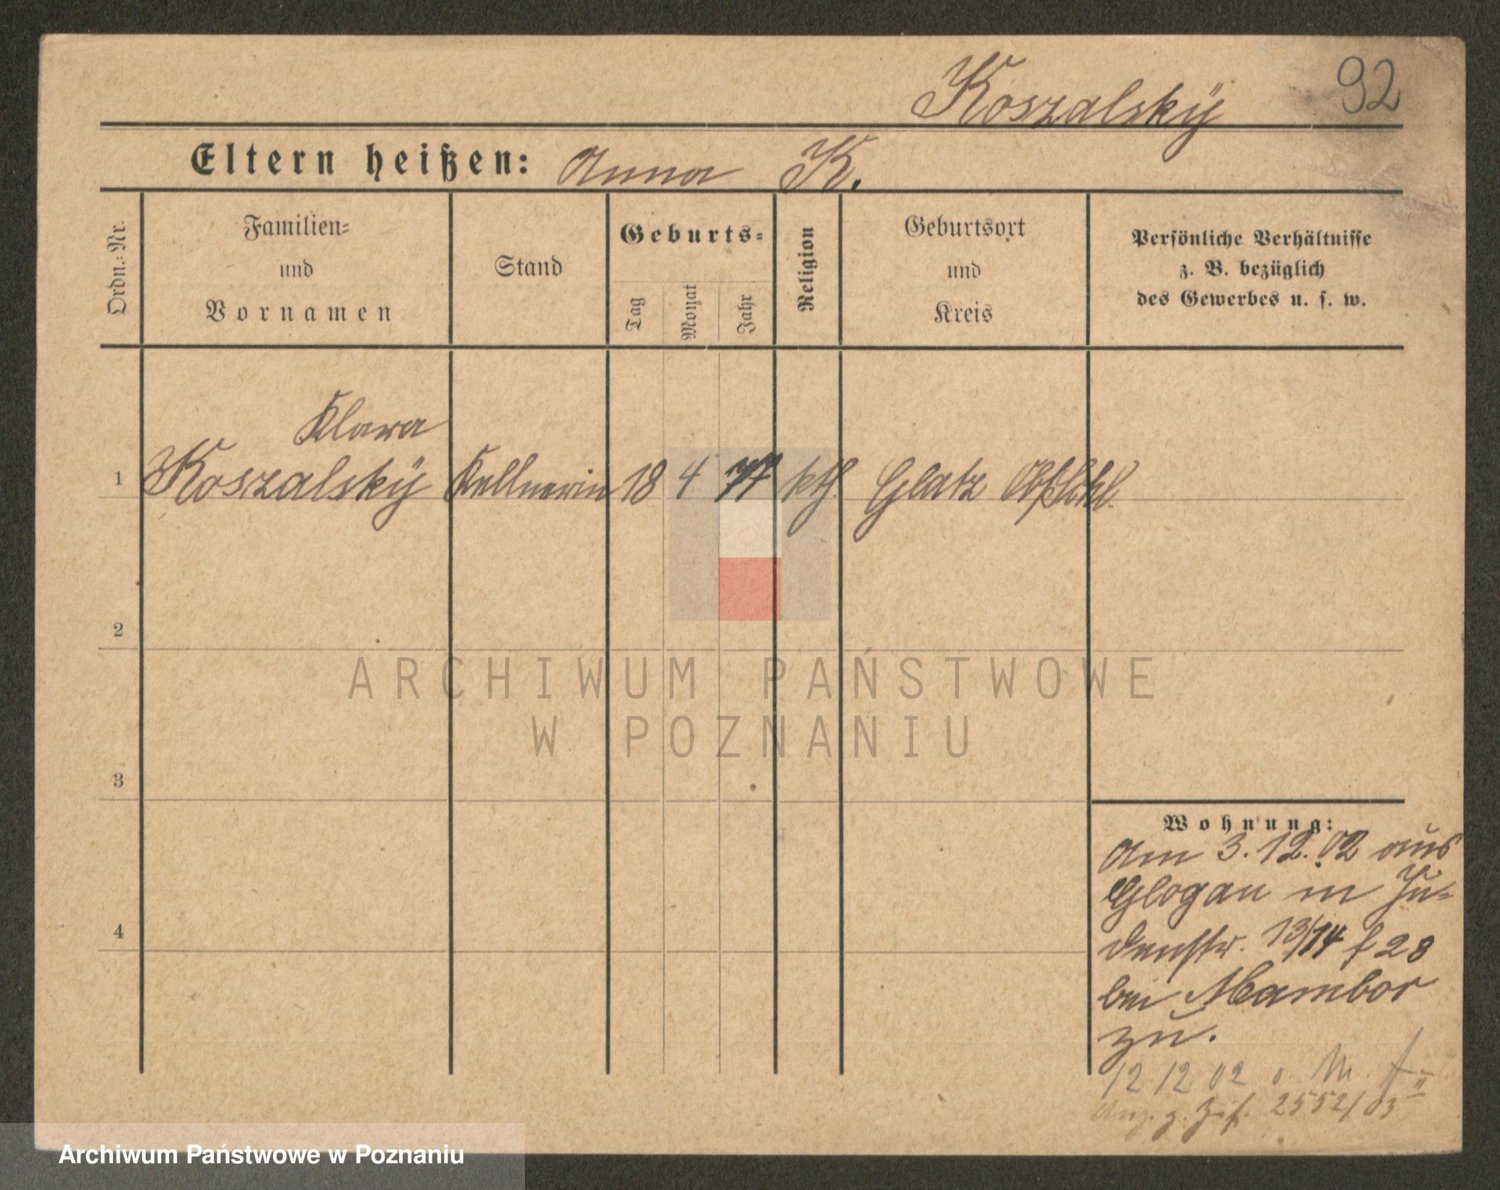 92
Koszalsky
Eltern heißen: Anna K.
Ordn.-Nr.
Familien-
und
Vornamen
Stand
Geburts-
Tag
Monat
Jahr
Religion
Geburtsort
und
Kreis
Persönliche Verhältnisse
z. B. bezüglich
des Gewerbes u. s. w.
Klara
1 Koszalsky Kellnerin 18 4 77 kth. Glatz
2
3
4
ARCHIWUM PAŃSTWOWE
W POZNANIU
Wohnung:
Am 3.12.02 aus
Glogau in Ju-
denstr. 13/14 f 28
bei Mambor
zu.
12 12 02 n. M.
2552/03
Archiwum Państwowe w Poznaniu